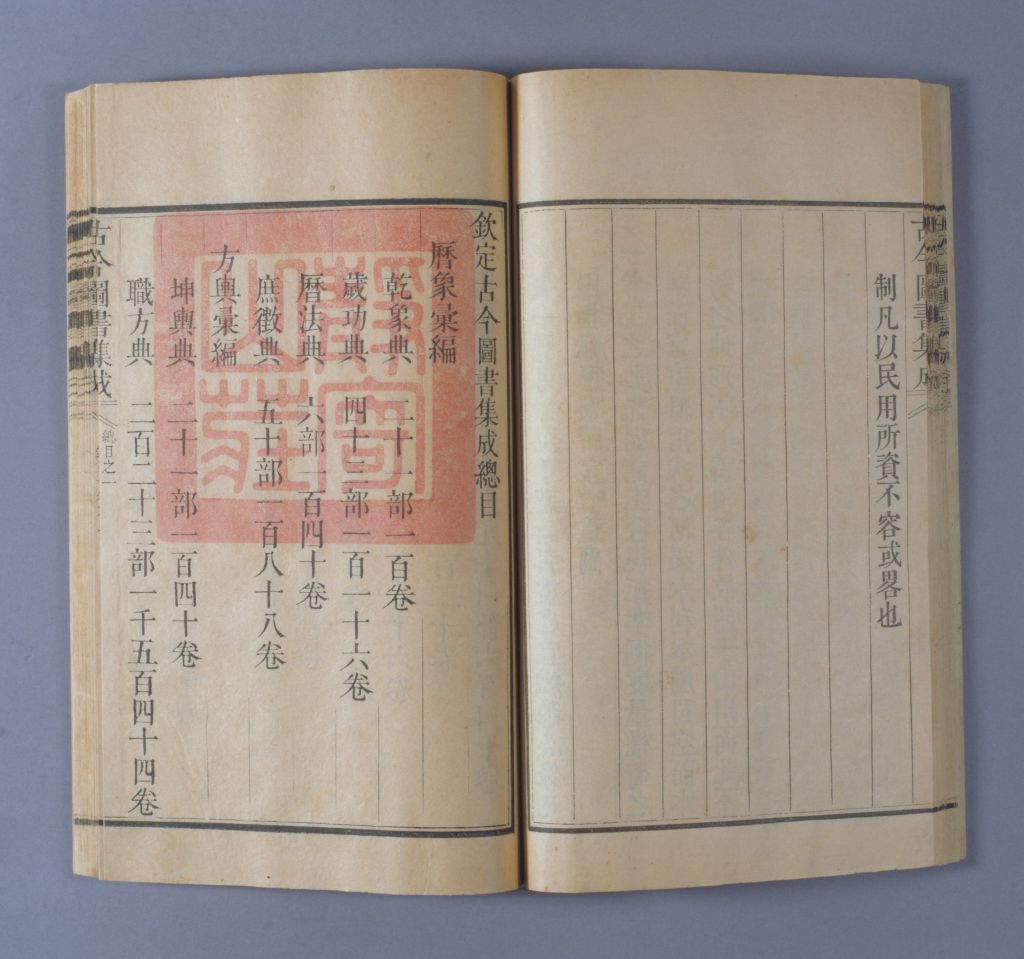 古今圖書集成
制凡以民用所資不容或畧也
欽定古今圖書集成總目
曆象彙編
乾象典 二十一部一百卷
歲功典 四十三部一百一十六卷
曆法典 六部一百四十卷
庶徵典 五十部一百八十八卷
方輿彙編
坤輿典 二十一部一百四十卷
職方典 二百二十三部一千五百四十四卷
古今圖書集成 總目之一
靜寄山莊